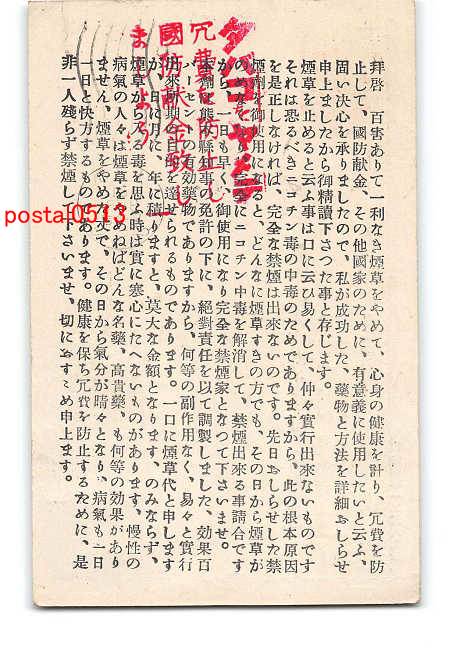 拝啓 百害ありて一利なき煙草をやめて、心身の健康を計り、冗費を防
止して、國防献金、その他國家のために、有意義に使用したいと云ふ、
固い決心を承りましたので、私が成功した、藥物と方法を詳細おしらせ
申上ましたから御精讀下さつた事と存じます。
煙草を止めると云ふ事は口に云ひ易くして、仲々實行出來ないものです
それは恐るべきニコチン毒の中毒のためでありますから、此の根本原因
を是正しなければ、完全な禁煙は出來ないのです。先日おしらせした禁
煙劑を御使用になると、どんなに煙草すきの方でも、その日から煙草が
のめなくなり、完全にニコチン中毒を解消して、禁煙出來る事請合です
から、一日も早く、御使用になり完全な禁煙家となつて下さいませ。
本劑は熊本縣知事の免許の下に、絕對責任を以て調製しました、効果百
パーセントの有効藥物でありますから、何等の副作用なく、易々と實行
出來所期の目的を達せられるものであります。一口に煙草代と申します
が、一日に月に、年に積りますと、莫大な金額となります、のみならず、
煙草から入る毒を思ふ時は實に寒心にたへないものがあります、慢性の
病氣の人々は煙草をやめねばどんな名藥、高貴藥、も何等の効果があり
ません、煙草をやめた丈で、その日から氣分が晴々となり、病氣も一日
一日と快方するものであります。健康を保ち冗費を防止するために、是
非一人殘らず禁煙して下さいませ、切におすゝめ申上ます。
タバコをやめ
冗費を防止し
國防献金致し
ましよう
posta-0513